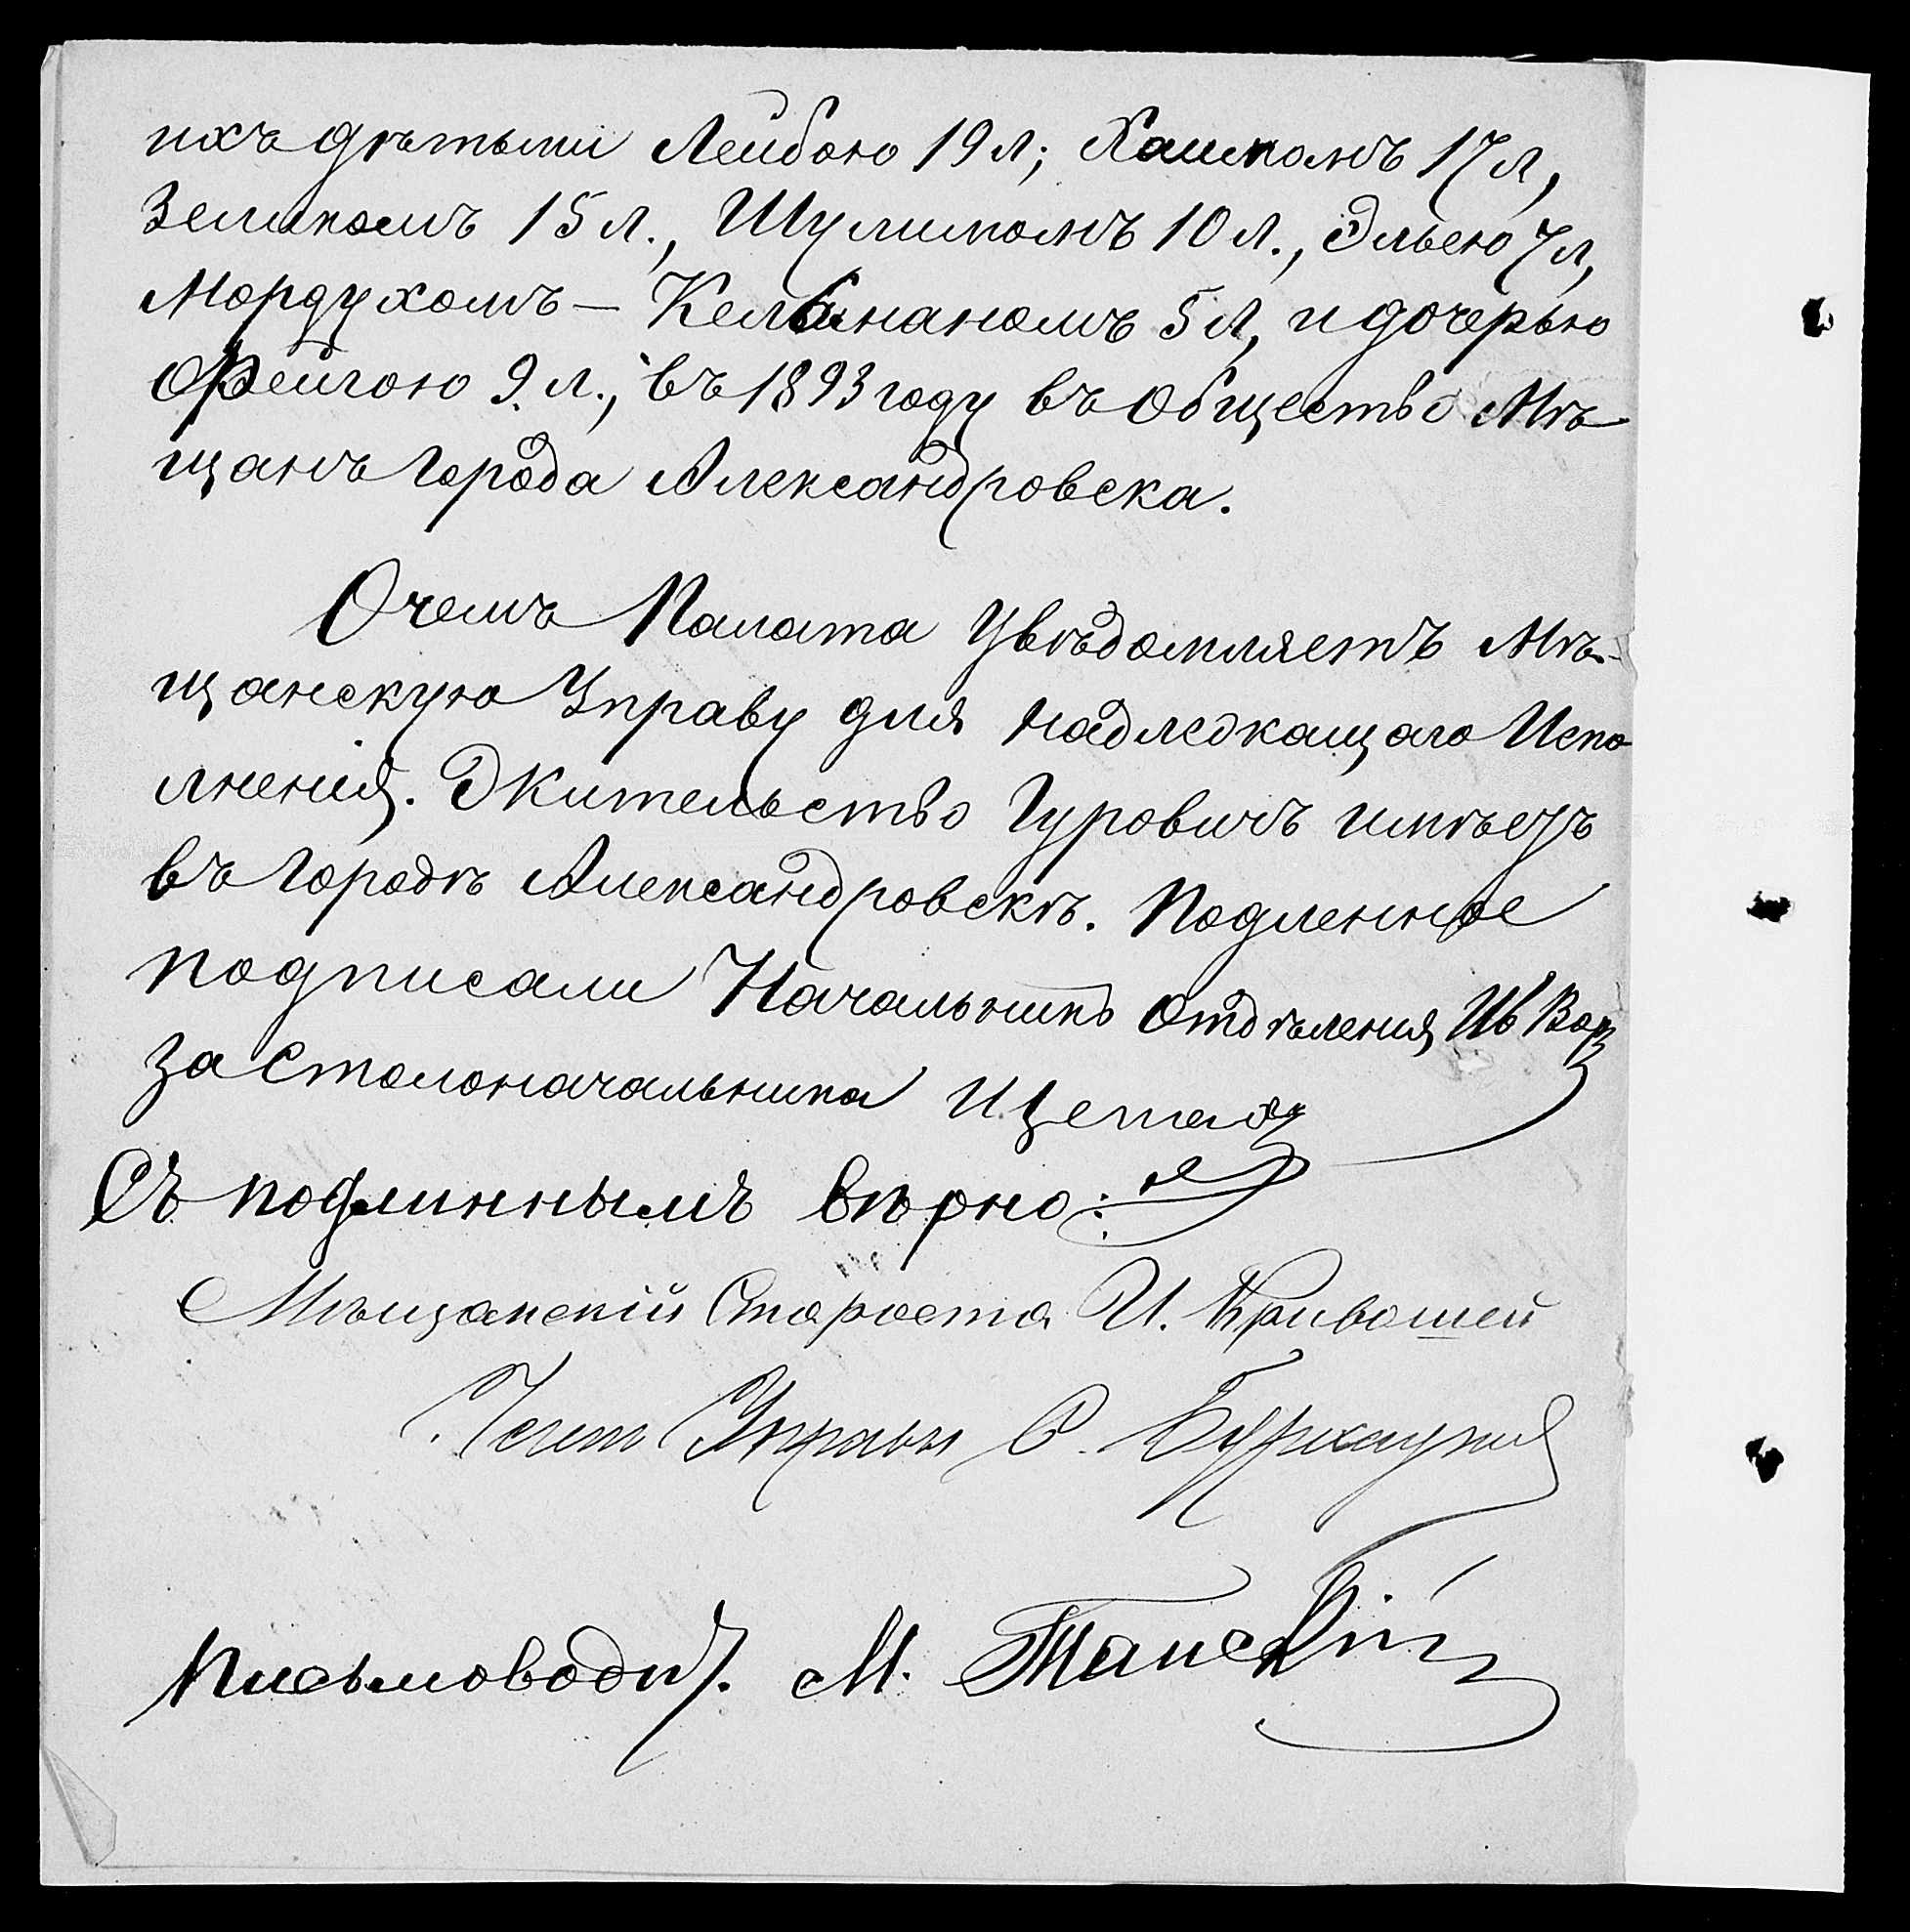 ихъ дѣтьми Лейбою 19 л; Хаимомъ 17 л,
Зеликомъ 15 л., Шулимомъ 10 л., Эльею 7 л,
Мордухомъ — 5 л, и дочерью
Фейгою 9 л., въ 1893 году въ Общество Мѣ
щанъ города Александровска.
О чемъ Палата увѣдомляетъ Мѣ-
щанскую Управу для надлежащаго Испо
лненія. Жительство Гуровичъ имѣетъ
въ городѣ Александровскѣ. Подленное
подписали Начальникъ Отдѣленія
за Столоначальника
Съ подлиннымъ вѣрно:
Мѣщанскій Староста И. Кривошей
Членъ Управы С.
Письмоводит. М.